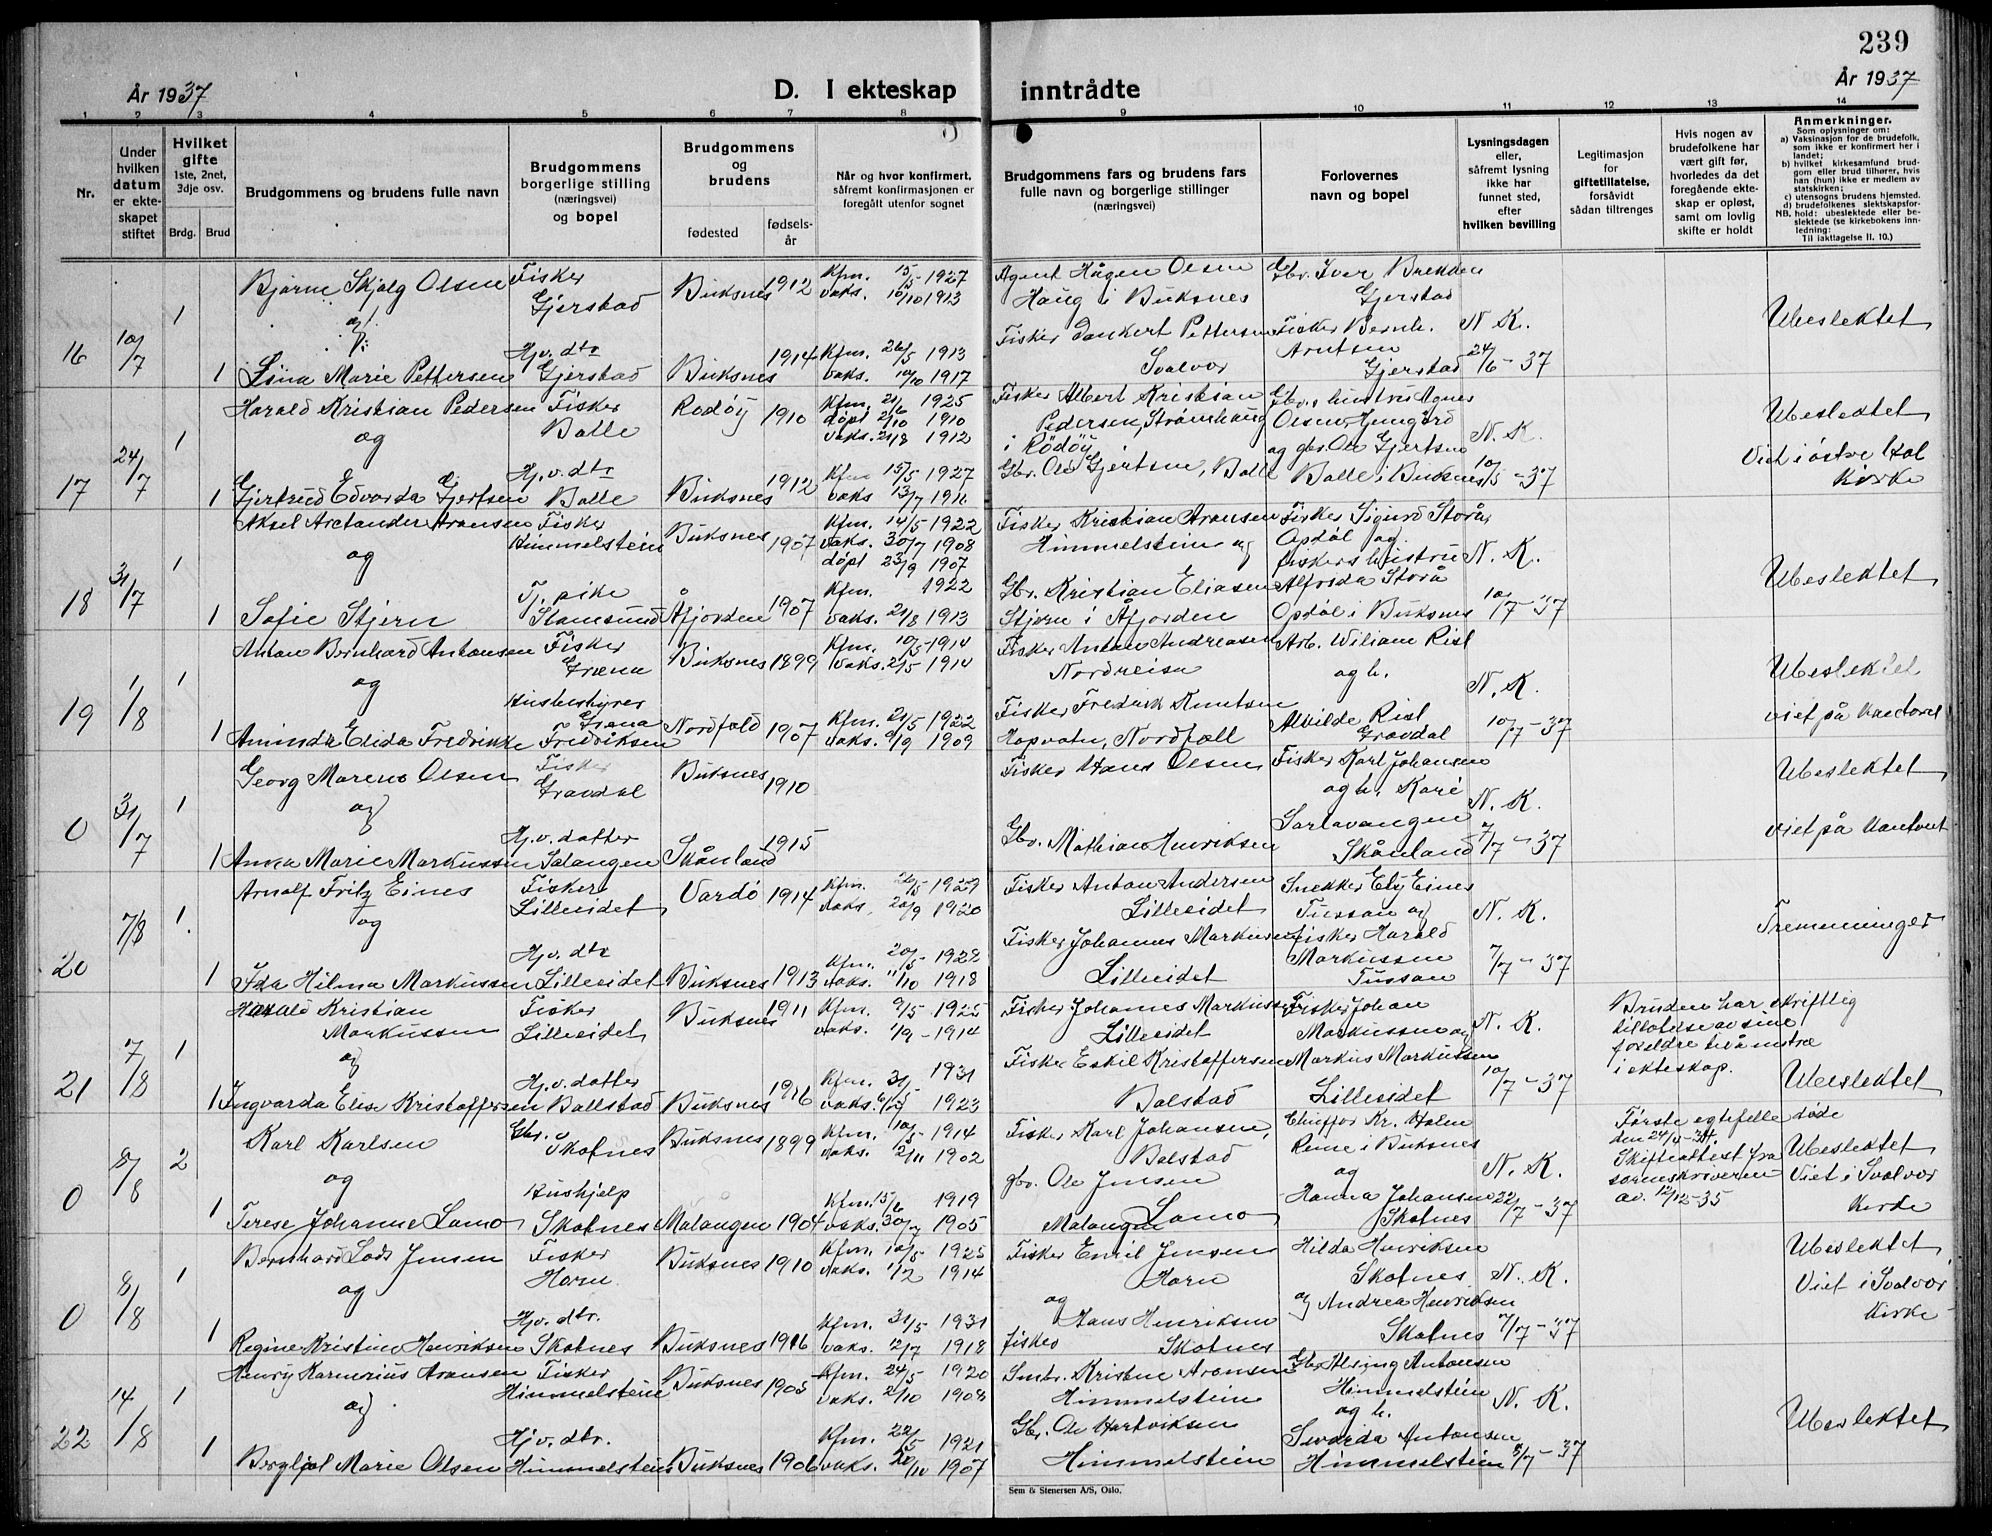 239
År 1937
D. I ekteskap inntrådte
År 1937
1 2 3 4 5 6 7 8 9 10 11 12 13 14
Nr.
Under hvilken datum er ekteskapet stiftet
Hvilket gifte 1ste, 2net, 3dje osv.
Brdg. Brud
Brudgommens og brudens fulle navn
Brudgommens borgerlige stilling (næringsvei) og bopel
Brudgommens og brudens
fødested
fødselsår
Når og hvor konfirmert, såfremt konfirmasjonen er foregått utenfor sognet
Brudgommens fars og brudens fars fulle navn og borgerlige stillinger (næringsvei)
Forlovernes navn og bopel
Lysningsdagen eller, såfremt lysning ikke har funnet sted, efter hvilken bevilling
Legitimasjon for giftetillatelse, forsåvidt sådan tiltrenges
Hvis nogen av brudefolkene har vært gift før, hvorledes da det foregående ekteskap er opløst, samt om lovlig skifte er holdt
Anmerkninger.
Som oplysninger om:
a) Vaksinasjon for de brudefolk, som ikke er konfirmert her i landet;
b) hvilket kirkesamfund brudgom eller brud tilhører, hvis han (hun) ikke er medlem av statskirken;
c) utensogns brudens hjemsted.
d) brudefolkenes slektskapsforhold: ubeslektede eller beslektede (se kirkebokens innledning:
NB.
Til iakttagelse II. 10.)
16 10/7 1 Bjarne Skjolg Olsen Fisker Gjerstad Buksnes 1912 Kfm. 15/5-1927 vaks. 10/10 1913 Agent Hågen Olsen Haug i Buksnes Gbr. Iver Brekken Gjerstad Ubeslektet
og
1 Lina Marie Pettersen Hj.v. dtr Gjerstad Buksnes 1914 Kfm. 26/5 1913 vaks. 10/10 1917 Fisker Dankert Pettersen Svolvær Fisker Bernh. Arntsen Gjerstad N. K. 24/6-37
17 24/7 1 Harald Kristian Pedersen Fisker Balle Rødøy 1910 Kfm. 21/6 1925 døpt 2/10 1910 vaks. 21/8 1912 Fisker Albert Kristian Pedersen, Strømhaug i Rødøy Gbr.s hustru Agnes Olsen, Ubeslektet
og
1 Gjertrud Edvarda Gjertsen Hj.v. dtr Balle Buksnes 1912 Kfm 15/5 1927 vaks 13/7 1916 Gbr. Ole Gjertsen, Balle og gbr. Ole Gjertsen Balle i Buksnes N. K. 10/5-37 Viet i østre Hol Kirke
18 31/7 1 Aksel Arctander Aronsen Fisker Himmelstein Buksnes 1907 Kfm. 14/5 1922 vaks. 30/7 1908 døpt 23/9 1907 Fisker Kristian Aronsen Himmelstein og Fisker Sigurd Storå, Opdøl og
og
1 Sofie Stjern Tj. pike Stamsund Åfjorden 1907 Kfm. 1922 vaks. 21/8 1913 Gbr. Kristian Eliasen Stjern i Åfjorden fiskers hustru Alfrida Storå Opdøl i Buksnes N. K. 10/7-37 Ubeslektet
19 1/8 1 Anton Bernhard Antonsen Fisker Græna Buksnes 1899 Kfm. 10/5-1914 vaks. 2/5 1914 Fisker Anton Andreasen Nordreisa Arb. Wiliam Rist og h. Ubeslektet
og
1 Aminda Elida Fredrikke Fredriksen Husbestyrer Græna Nordfold 1907 Kfm. 21/5 1922 vaks. 9/9 1909 Fisker Fredrik Knutsen Hopvatn, Nordfoll Alvilde Rist Gravdal N. K. 10/7-37 viet på kontoret
0 31/7 1 Georg Moreno Olsen Fisker Gravdal Buksnes 1910 Fisker Hans Olsen Fisker Karl Johansen og h. Kari Ubeslektet
og
1 Anna Marie Markussen Hj.v. datter Salangen Skånland 1915 Gbr. Mathian Henriksen Sørlavangen Skånland N. K. 7/7-37 viet på kontoret
20 7/8 1. Arnolf Fritz Eines Fisker Lilleeidet Vardö 1914 Kfm. 26/5 1929 vaks. 20/9 1920 Fisker Anton Andersen Lilleeidet Snekker Ely Eines Tussan og
og
1 Ida Hilma Markussen Hj.v. dtr Lilleeidet Buksnes 1913 Kfm. 20/5-1928 vaks. 11/10 1918 Fisker Johannes Markussen Lilleeidet fisker Harald Markussen Tussan N. K. 7/7-37 Tremenninger
21 7/8 1 Harald Kristian Markussen Fisker Lilleeidet Buksnes 1911 Kfm. 9/5-1925 vaks. 1/9-1914 Fisker Johannes Markussen Lilleeidet Fisker Johan Markussen og Bruden har skriftlig tillatelse av sine foreldre til å inntre i ekteskap.
og
1 Ingvarda Elise Kristoffersen Hj.v. datter Ballstad Buksnes 1916 Kfm. 31/5 1931 vaks. 6/5 1923 Fisker Eskil Kristoffersen Balstad Markus Markussen Lilleeidet N. K. 10/7-37 Ubeslektet
0 8/8 2 Karl Karlsen Gbr. Skotnes Buksnes 1899 Kfm. 10/5-1914 vaks. 2/11 1902 Fisker Karl Johansen, Balstad Chuffør Kr. Holm Reine i Buksnes og Første egtefelle døde den 24/4-34. Skifteattest fra sorenskriveren av. 12/12-35
og
1 Terese Johanne Lamo Hushjelp Skotnes Malangen 1904 Kfm. 15/6 1919 vaks. 30/7 1905 gbr. Ole Jensen Lamo Malangen Hanna Johansen Skotnes N. K. 22/7-37 Ubeslektet Viet i Svolvær Kirke
0 8/8 1 Bernhard Lods Jensen Fisker Horn Buksnes 1910 Kfm. 10/5 1925 vaks. 1/2 1914 Fisker Emil Jensen Horn Hilda Henriksen Skotnes Ubeslektet
og
1 Regine Kristine Henriksen Hj.v. dtr. Skotnes Buksnes 1916 Kfm. 31/5 1931 vaks. 12/7 1918 og fisker Hans Henriksen Skotnes og Andrea Henriksen Skotnes N. K. 7/7-37 Viet i Svolvær Kirke
22 14/8 1 Henry Karnerius Aronsen Fisker Himmelstein Buksnes 1905 Kfm. 24/5 1920 vaks. 2/10 1908 Smbr. Kristine Aronsen Himmelstein Gbr. Alsing Antonsen Himmelstein og h.
og
1 Bergljot Marie Olsen Hj.v. dtr. Himmelstein Buksnes 1906 Kfm. 22/5 1921 vaks. 20/10 1907 Gbr. Ole Hartviksen Himmelstein Svarda Antonsen Himmelstein N. K. 8/7-37 Ubeslektet
Sem & Stenersen A/S, Oslo.